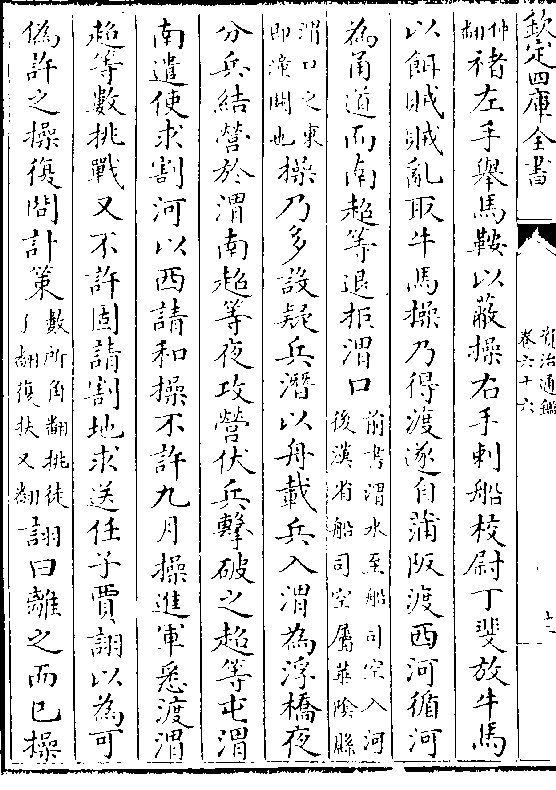 欽定四庫全書
資治通鑑
卷六十六
仲翻褚左手舉馬鞍以蔽操右手刺船校尉丁斐放牛馬
以餌賊賊亂取牛馬操乃得渡遂自蒲阪渡西河循河
為甬道而南超等退拒渭口前書渭水至船司空入河後漢省船司空屬華隂縣
渭口之東即潼關也操乃多設疑兵潛以舟載兵入渭為浮橋夜
分兵結營於渭南超等夜攻營伏兵擊破之超等屯渭
南遣使求割河以西請和操不許九月操進軍悉渡渭
超等數挑戰又不許固請割地求送任子賈詡以為可
偽許之操復問計策數所角翻挑徒了翻復扶又翻詡曰離之而已操